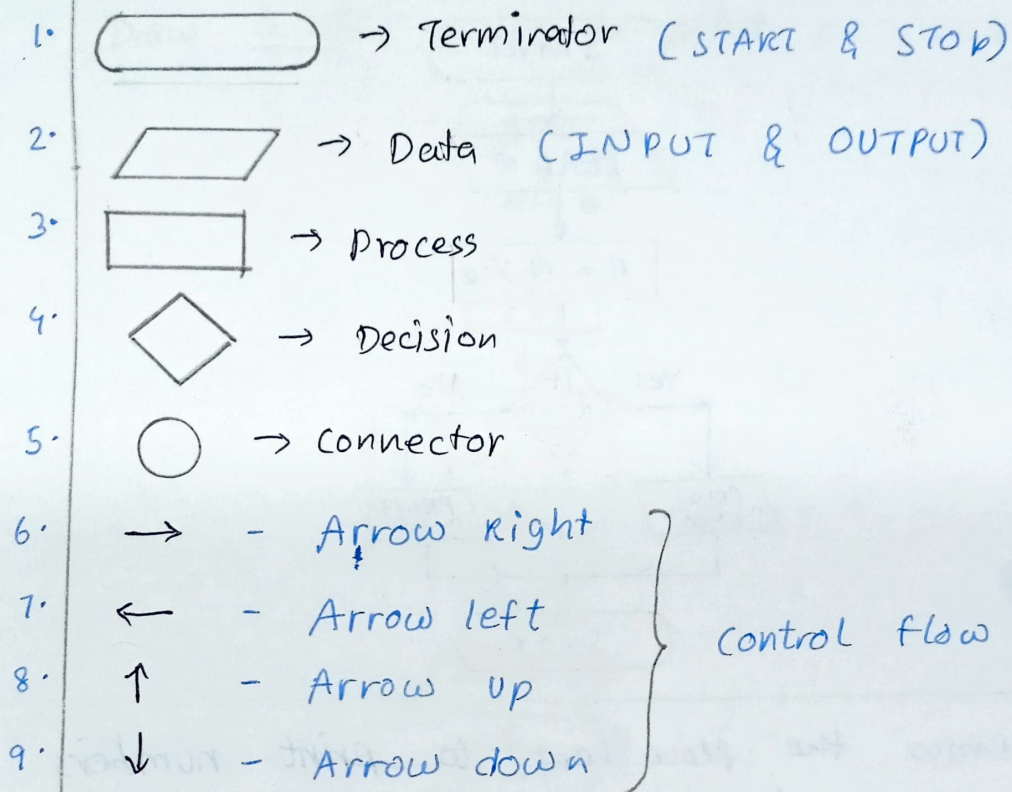 1. → Terminator (START & STOP)
2. → Data (INPUT & OUTPUT)
3. → Process
4. → Decision
5. → Connector
6. → - Arrow Right
7. ← - Arrow left
8. ↑ - Arrow up
9. ↓ - Arrow down
Control flow